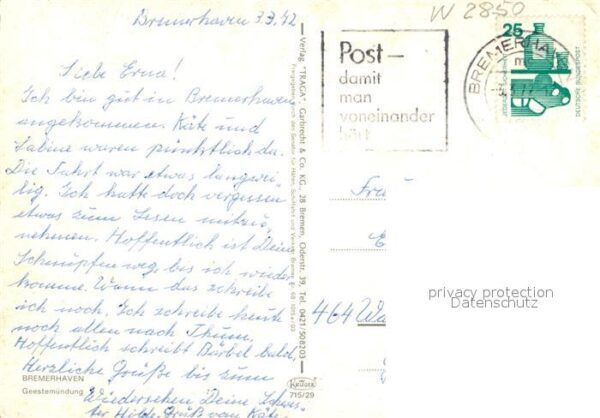 Bremerhaven 3.3.72
Liebe Erna!
Ich bin gut in Bremerhaven
angekommen. Käte und
Sabine waren pünktlich da.
Die Fahrt war etwas langwei-
lig. Ich hatte doch vergessen
etwas zum Lesen mitzu-
nehmen. Hoffentlich ist Dein
Schnupfen weg, bis ich wieder
komme. Wann das schreibe
ich noch. Ich schreibe heute
noch allen nach Thum.
Hoffentlich schreibt Bärbel bald.
Herzliche Grüße bis zum
Wiedersehen Deine Schwes-
ter Hilde. Gruß von Käte
BREMERHAVEN
Geestemündung
Verlag "TRAGA", Garbrecht & Co. KG., 28 Bremen, Odenstr. 39, Tel. 0421/508203
Krüger
715/29
W 2850
Post –
damit
man
voneinander
hört
BREMERHA
25
DEUTSCHE BUNDESPOST
Frau
464 Wa
privacy protection
Datenschutz